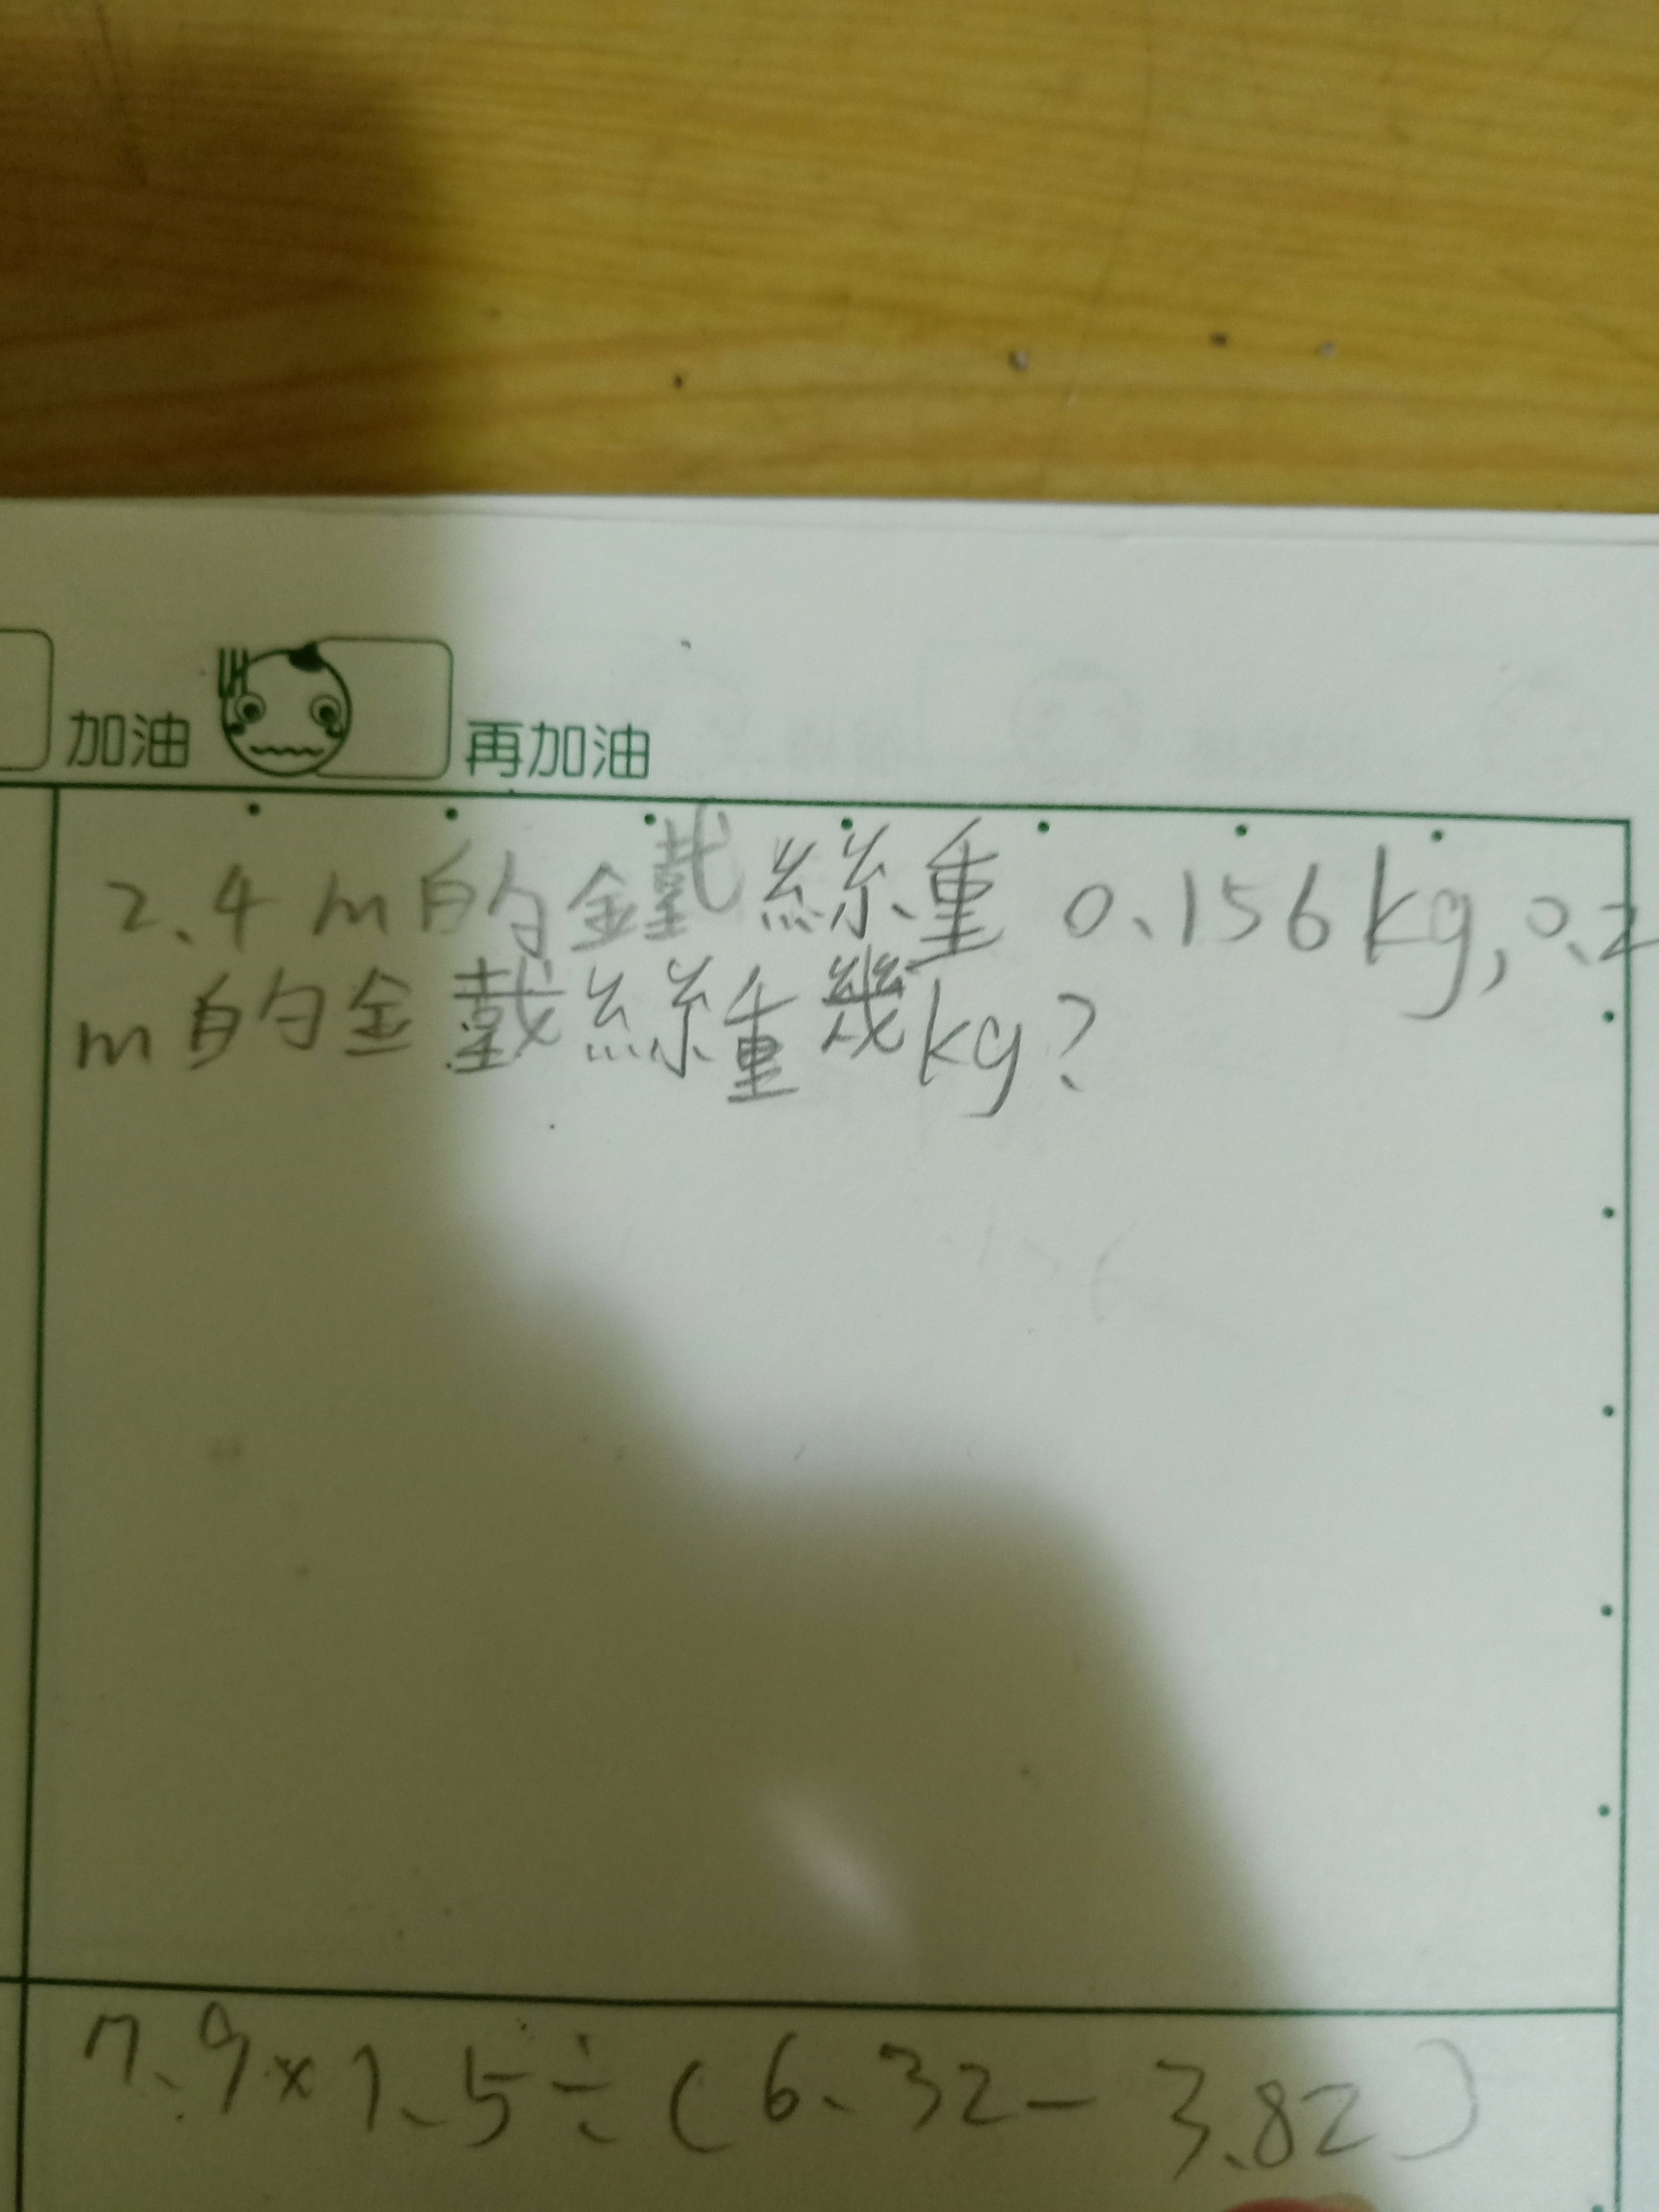 加油 再加油
2.4m的鐵絲重0.156kg,0.2
m的鐵絲重幾kg?
7.9×1.5÷(6.32-3.82)